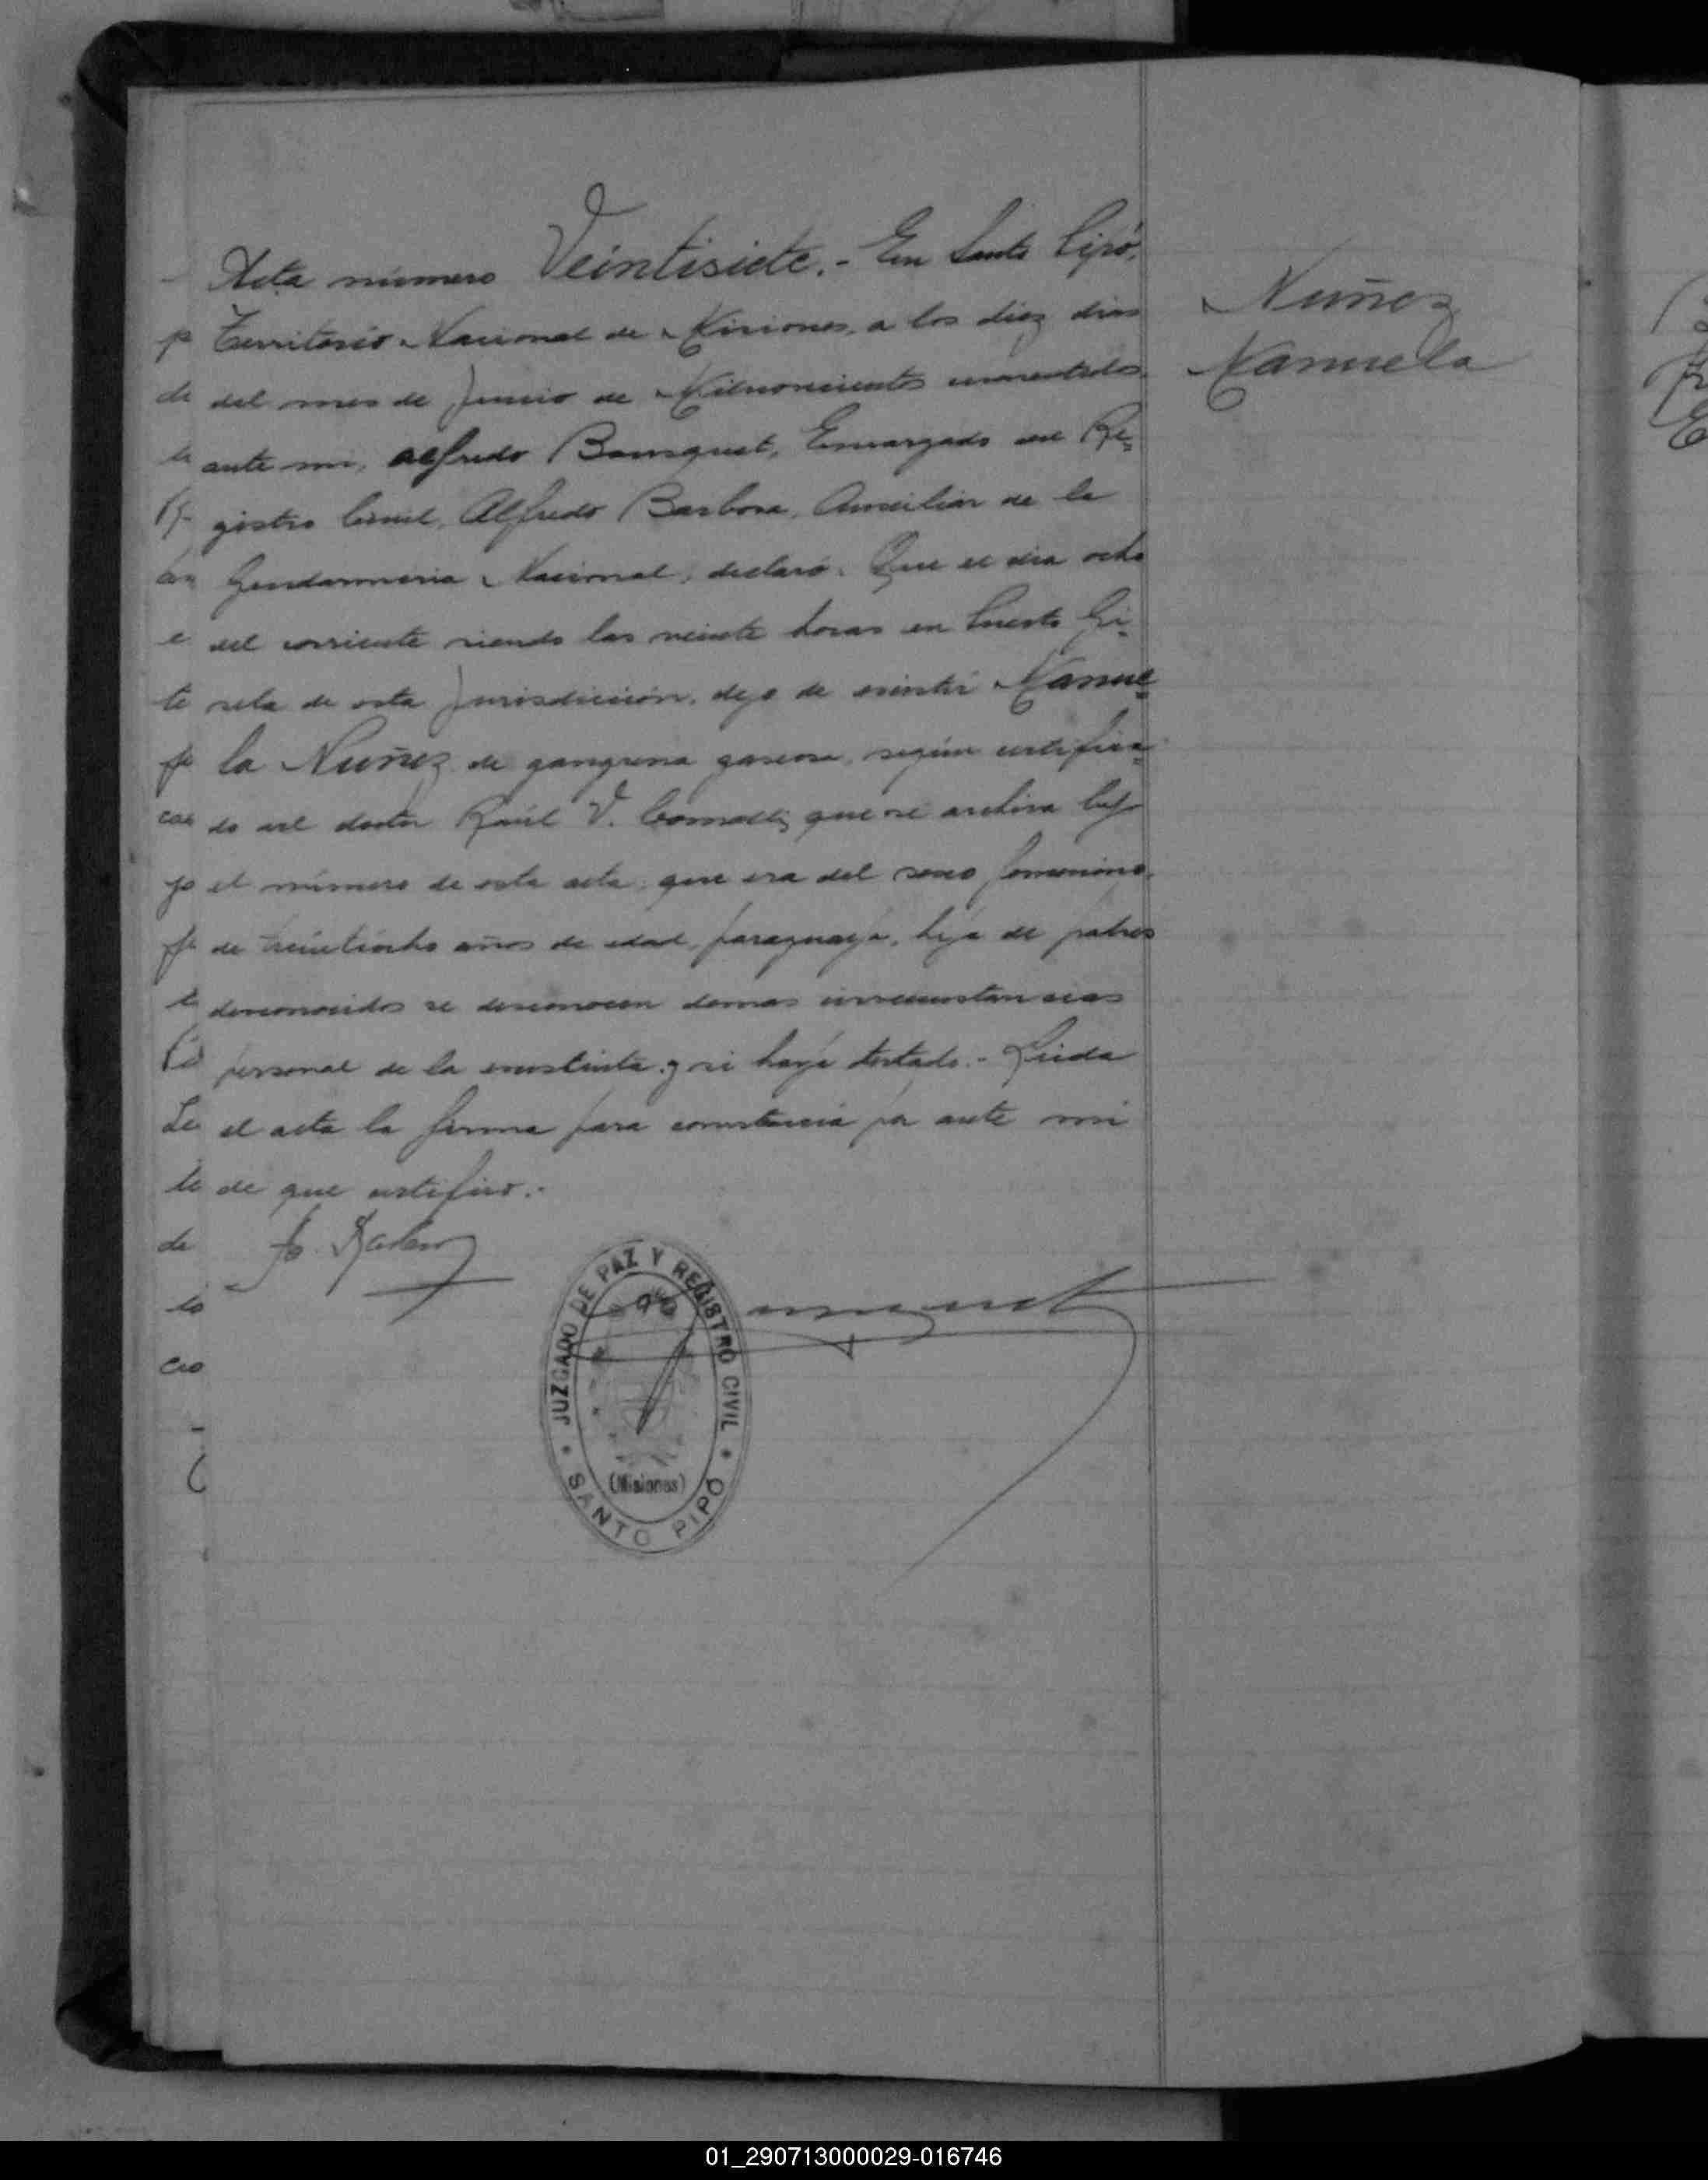 Acta número Veintisiete.- En Santo Pipó,
Territorio Nacional de Misiones, a los diez dias
del mes de Junio de Milnovecientos cuarentidos
ante mi, Alfredo Bousquet, Encargado del Re=
gistro Civil, Alfredo Barbosa, Auxiliar de la
Gendarmeria Nacional, declaró: Que el dia ocho
del corriente siendo las veinte horas en Puerto Gi=
sela de esta Jurisdicción, dejo de existir Manue=
la Nuñez de gangrena gaseosa, según certifica=
do del doctor Raúl V. que se archiva bajo
el número de esta acta; que era del sexo femenino,
de treintiocho años de edad, paraguaya, hija de padres
desconocidos se desconocen demas circunstancias
personal de la exestinta y si haya testado.- Leida
el acta la firma para constancia por ante mi
de que certifico.-
Nuñez
Manuela
JUZGADO DE PAZ Y REGISTRO CIVIL
(Misiones)
SANTO PIPÓ
01_290713000029-016746